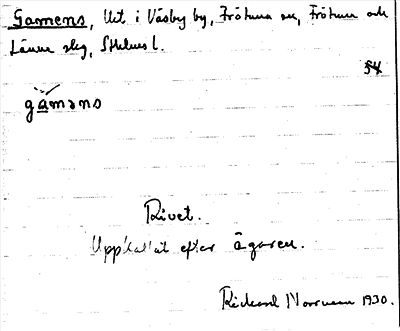 Gamens, Urt i Väsby by, Frötuna sn, Frötuna och
Länna skg, Sthlms l.
54
gamǝns
Rivet.
Uppkallat efter ägaren.
Rickard Norrman 1930.